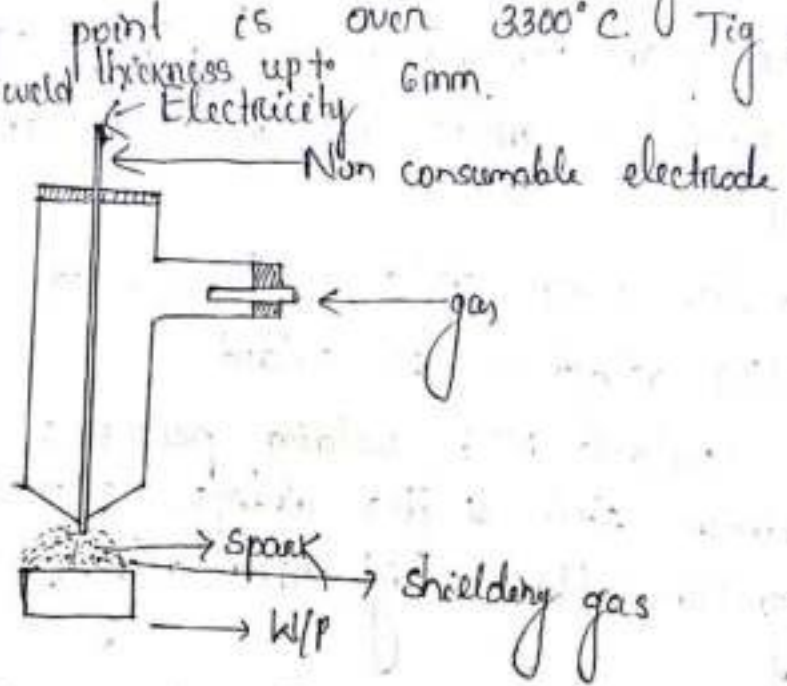 point is over 3300°C. Tig
weld thickness up to 6mm.
Electricity
Non consumable electrode
gas
Spark
Shielding gas
W/P